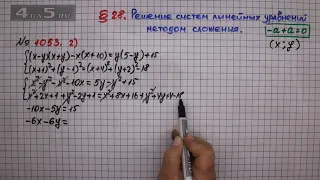 4 5
§ 28. Решение систем линейных уравнений
методом сложения.
-a+a=0
(x; y)
№ 1053. 2)
(x-y)(x+y)-x(x+10)=y(5-y)+15
(x+1)²+(y-1)²=(x+4)²+(y+2)²-18
x²-y²-x²-10x=5y-y²+15
x²+2x+1+y²-2y+1=x²+8x+16+y²+4y+4-18
-10x-5y=15
-6x-6y=